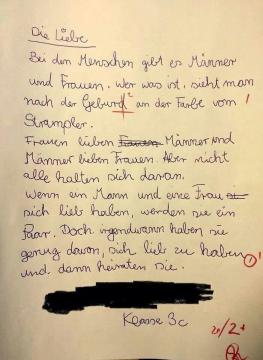 Die Liebe
Bei den Menschen gibt es Männer
und Frauen. Wer was ist, sieht man
nach der Geburd an der Farbe vom
Strampler.
Frauen lieben Männer und
Männer lieben Frauen. Aber nicht
alle halten sich daran.
Wenn ein Mann und eine Frau
sich lieb haben, werden sie ein
Paar. Doch irgendwann haben sie
genug davon, sich lieb zu haben
und dann heiraten sie.
Klasse 3c
2+